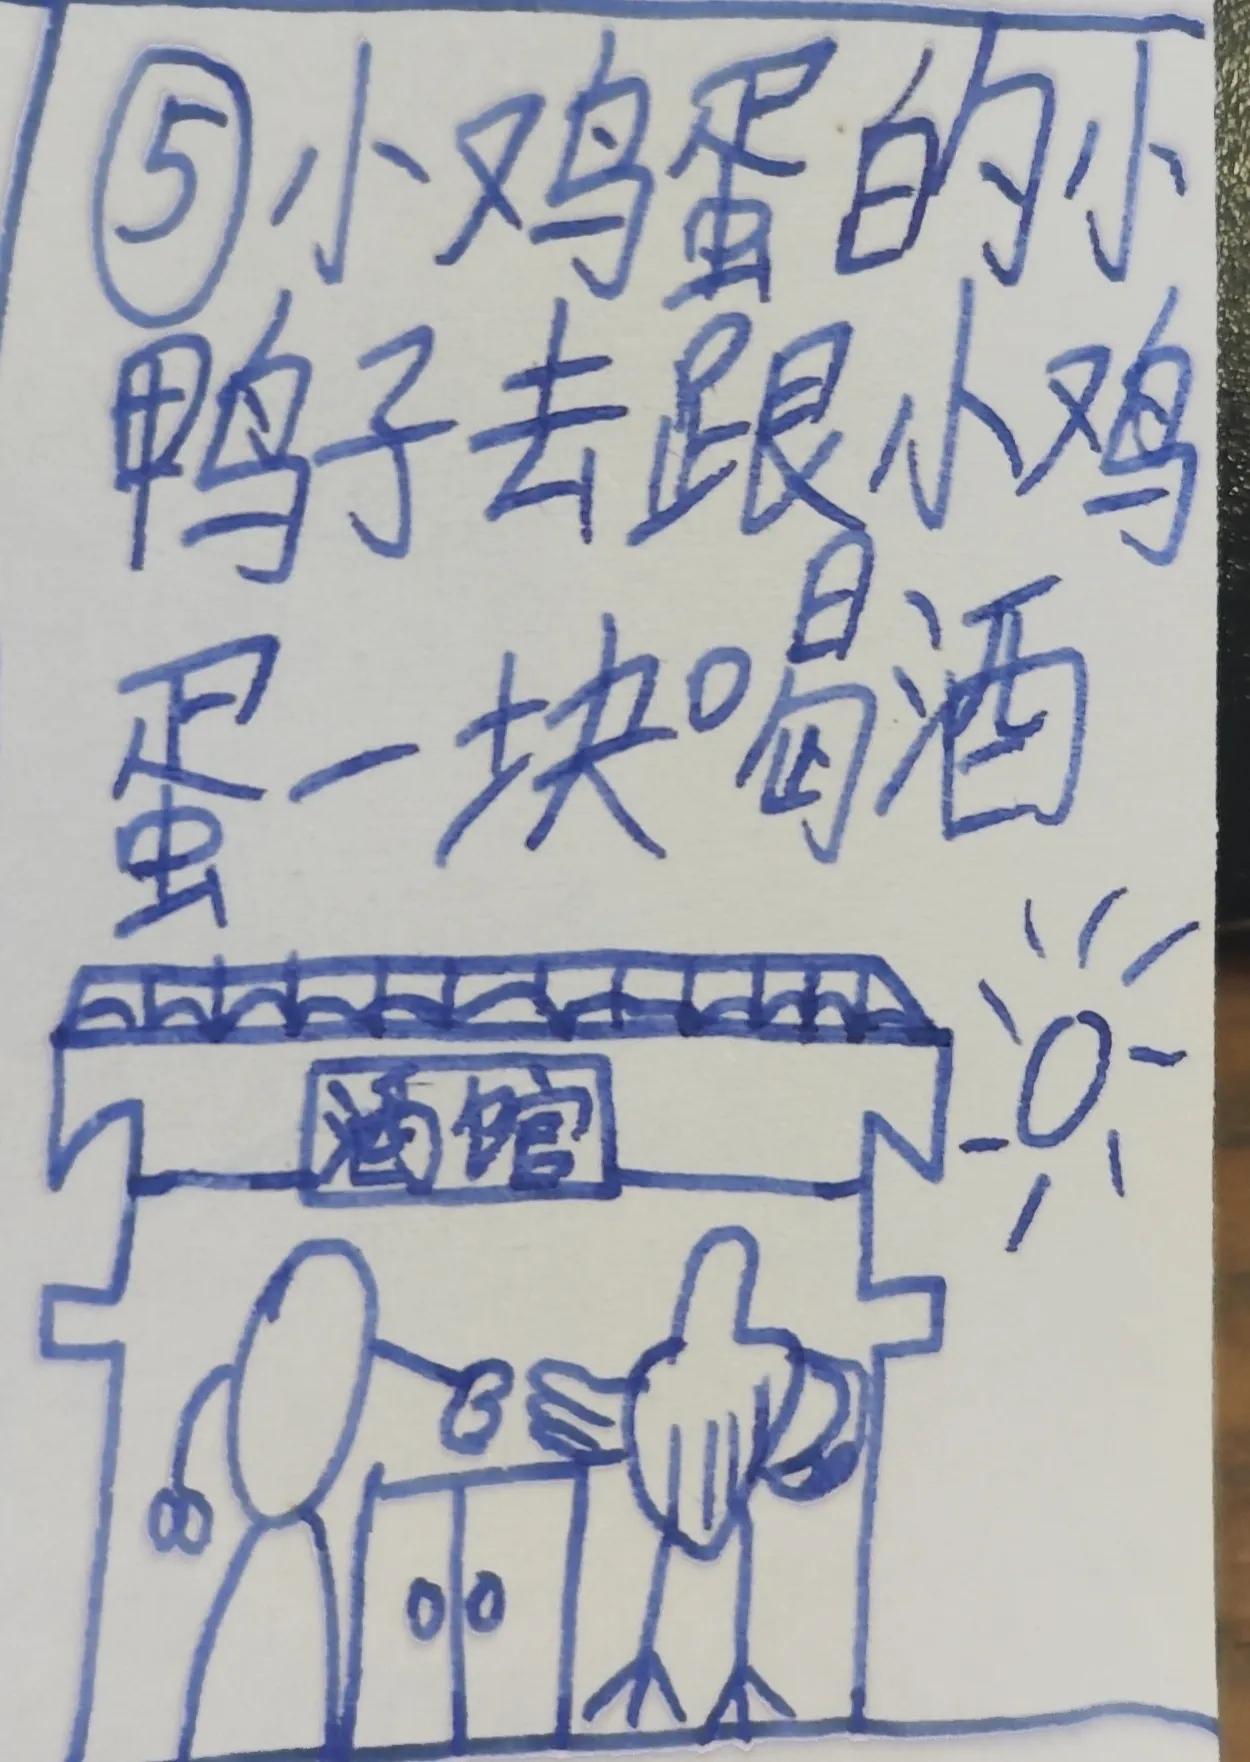 ⑤小鸡蛋的小
鸭子去跟小鸡
蛋一块喝酒
酒馆